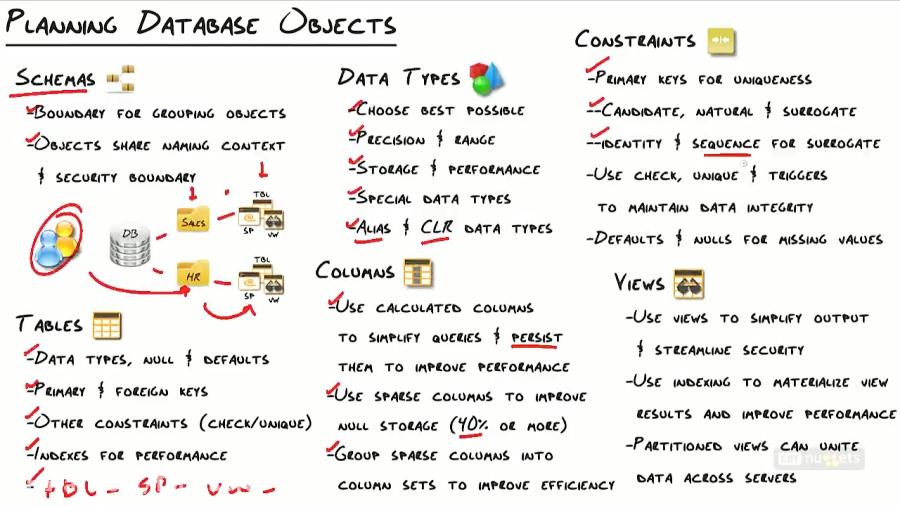 Planning Database Objects
Schemas
-Boundary for grouping objects
-Objects share naming context
& security boundary
DB
Sales
TBL
SP
VW
HR
TBL
SP
VW
Tables
-Data types, null & defaults
-Primary & foreign keys
-Other constraints (check/unique)
-Indexes for performance
-tbl- SP- VW-
Data Types
-Choose best possible
-Precision & range
-Storage & performance
-Special data types
-Alias & CLR data types
Columns
-Use calculated columns
to simplify queries & persist
them to improve performance
-Use sparse columns to improve
null storage (40% or more)
-Group sparse columns into
column sets to improve efficiency
Constraints
-Primary keys for uniqueness
-Candidate, natural & surrogate
-Identity & sequence for surrogate
-Use check, unique & triggers
to maintain data integrity
-Defaults & nulls for missing values
Views
-Use views to simplify output
& streamline security
-Use indexing to materialize view
results and improve performance
-Partitioned views can unite
data across servers
cbt nuggets